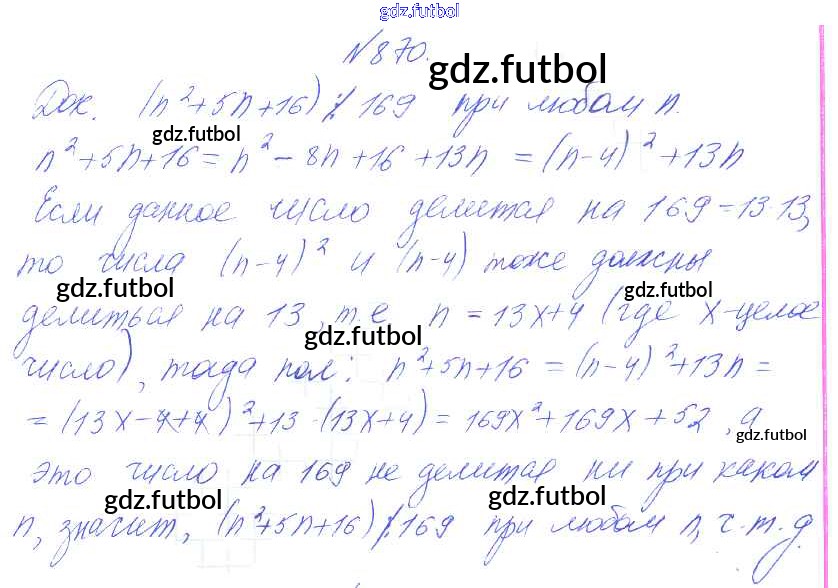 gdz.futbol
№870.
gdz.futbol
Док. (n²+5n+16) ⋮̸ 169 при любом n.
gdz.futbol
n²+5n+16 = n² - 8n + 16 + 13n = (n-4)² + 13n
Если данное число делится на 169 = 13·13,
то числа (n-4)² и (n-4) тоже должны
gdz.futbol gdz.futbol
делиться на 13, т.е. n = 13x+4 (где x-целое
gdz.futbol
число), тогда пол: n²+5n+16 = (n-4)²+13n =
= (13x-4+4)²+13·(13x+4) = 169x²+169x+52, а
gdz.futbol
это число на 169 не делится ни при каком
gdz.futbol gdz.futbol
n, значит, (n²+5n+16) ⋮̸ 169 при любом n, ч.т.д.